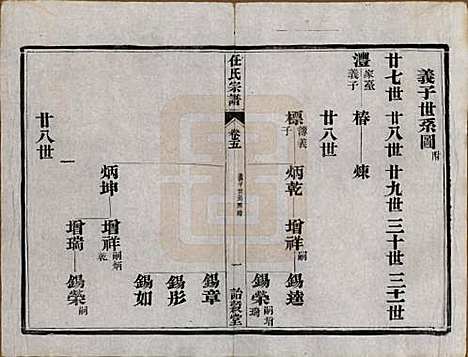 義子世系圖附
廿七世 廿八世 廿九世 三十世 三十一世
灃 家臺義子 椿 煉
廿八世
標 薄義子 炳乾 增祥 錫逵
錫榮 嗣增瑞
任氏宗譜 卷五 義子世系圖 一
錫章
錫彤
錫如
炳坤 增祥 嗣炳乾
增瑞 錫榮 嗣
廿八世